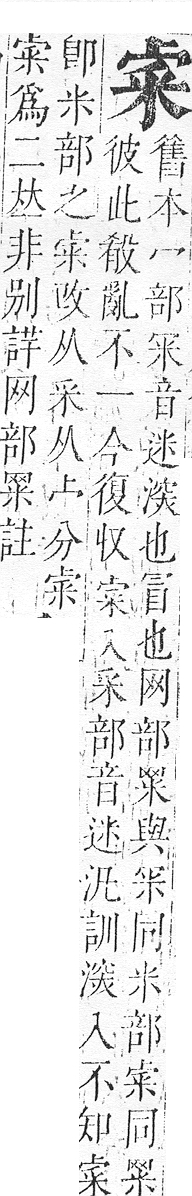 宷
舊本冖部冞音迷㴱也冒也网部罙與冞同米部宩同罙
彼此殽亂不一今復收宷入釆部音迷汎訓㴱入不知宷
卽米部之宩攺从釆从宀分宩
宷爲二𠀤非別詳网部罙註